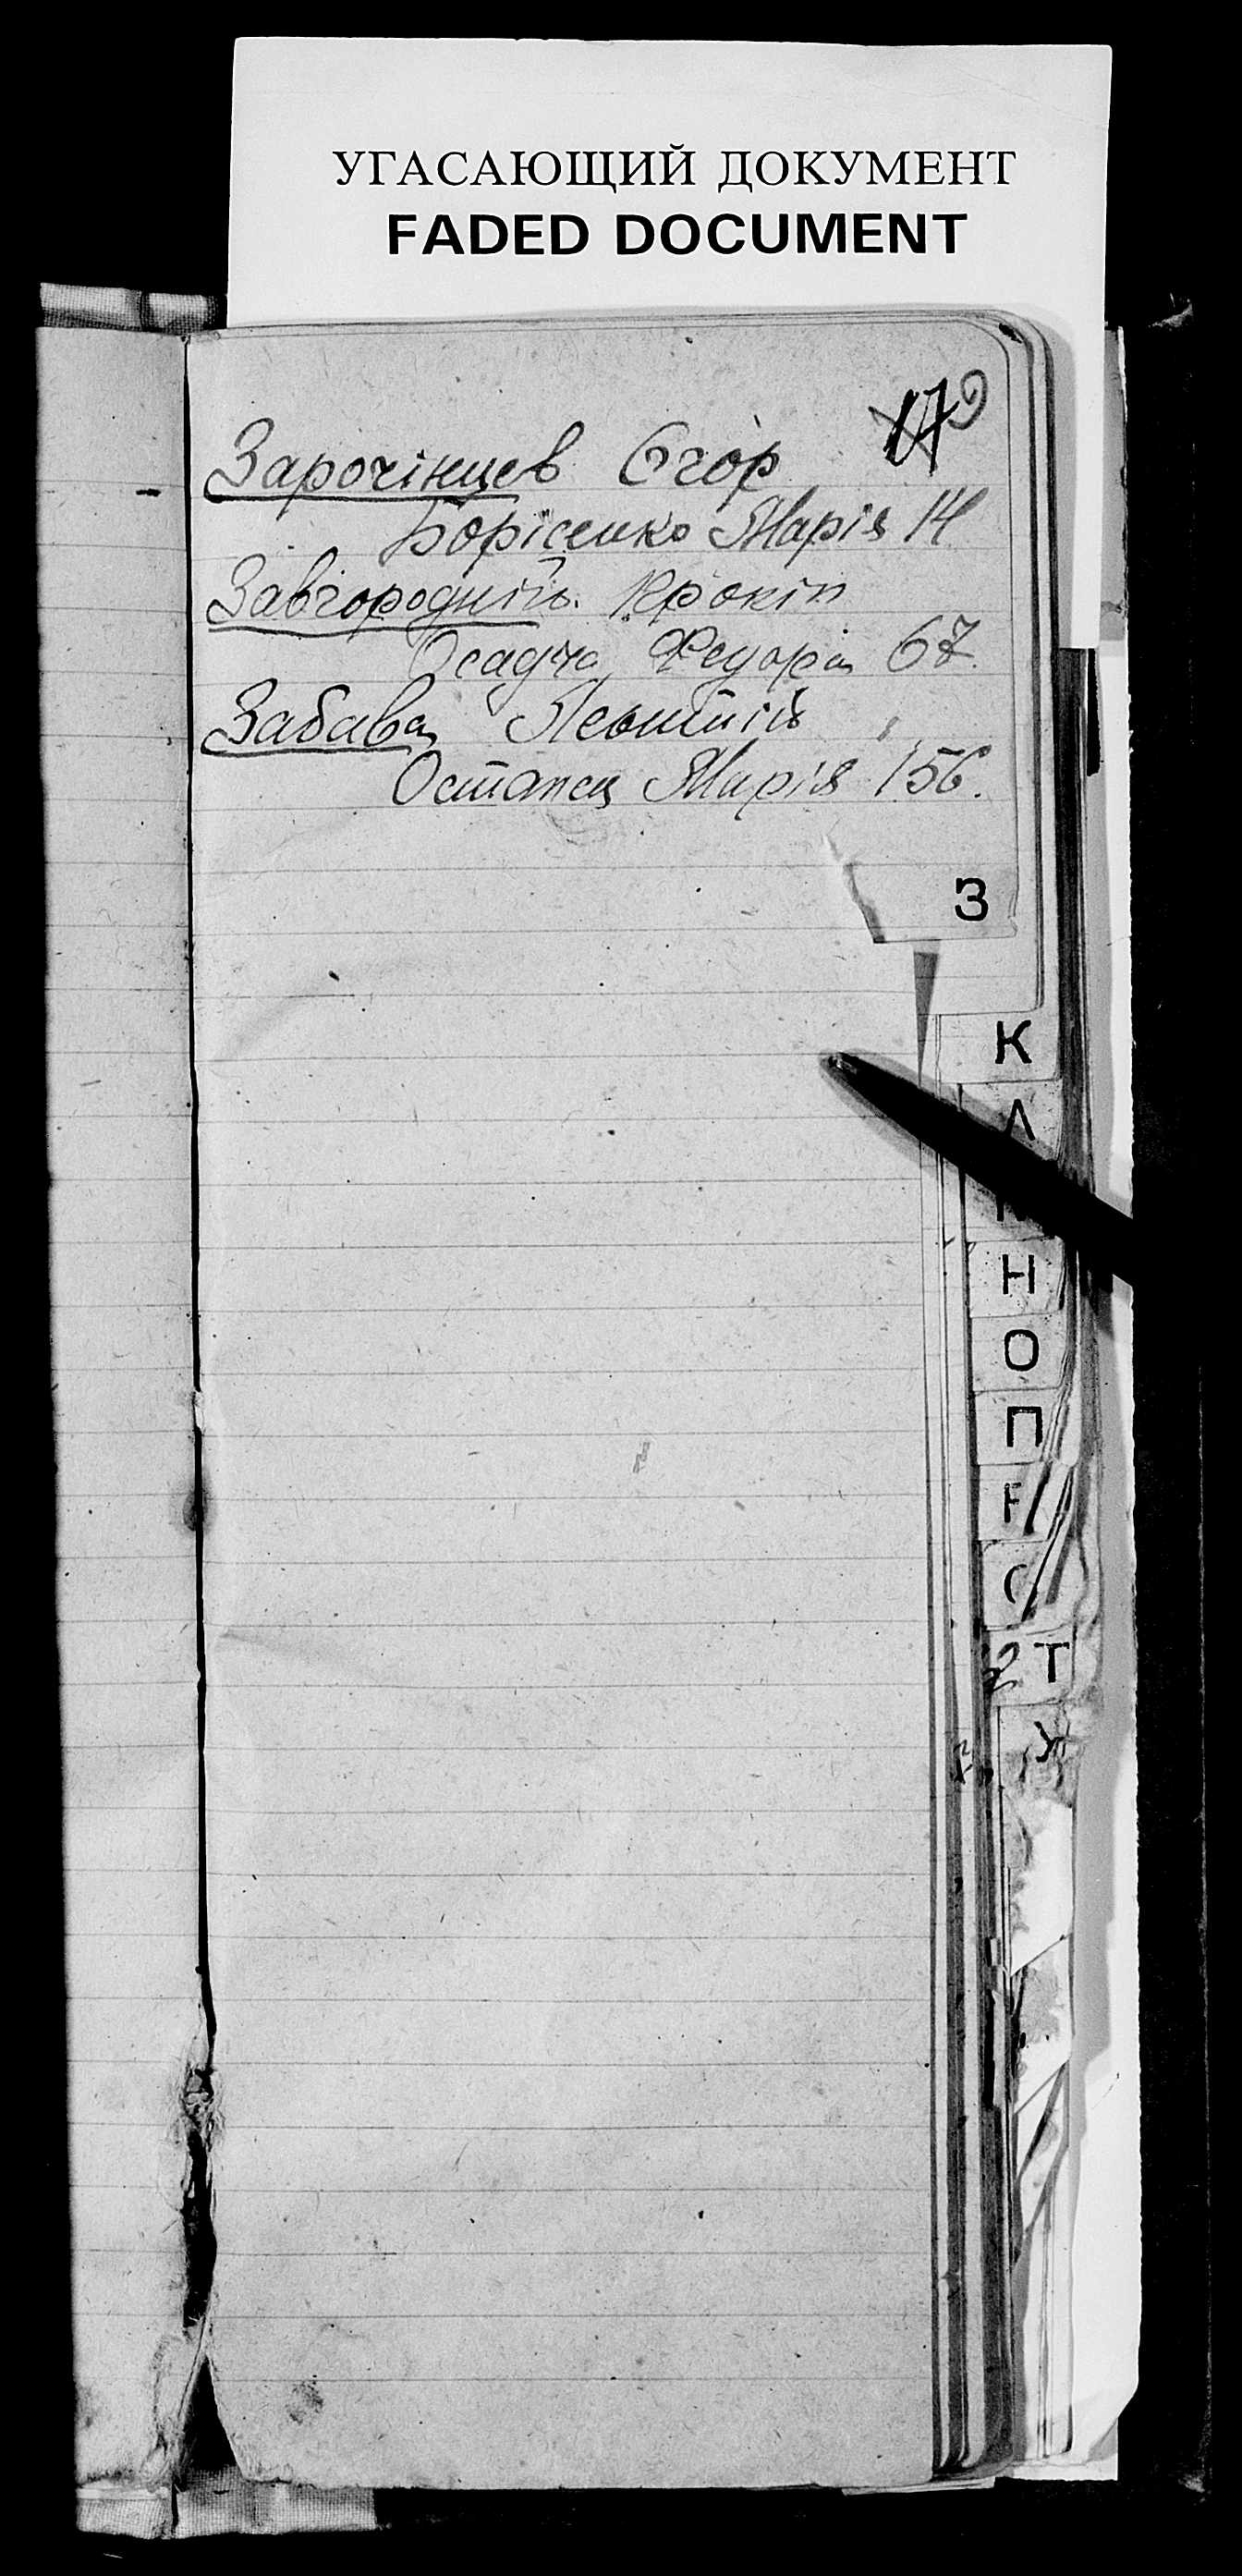 УГАСАЮЩИЙ ДОКУМЕНТ
FADED DOCUMENT
9
Зарочінцев Єгор
Борісенко Марія 14
Завгородній Прокіп
Осадча Федора 67.
Забава Леонтій
Остапец Марія 156.
З
К
Л
М
Н
О
П
Р
С
Т
У